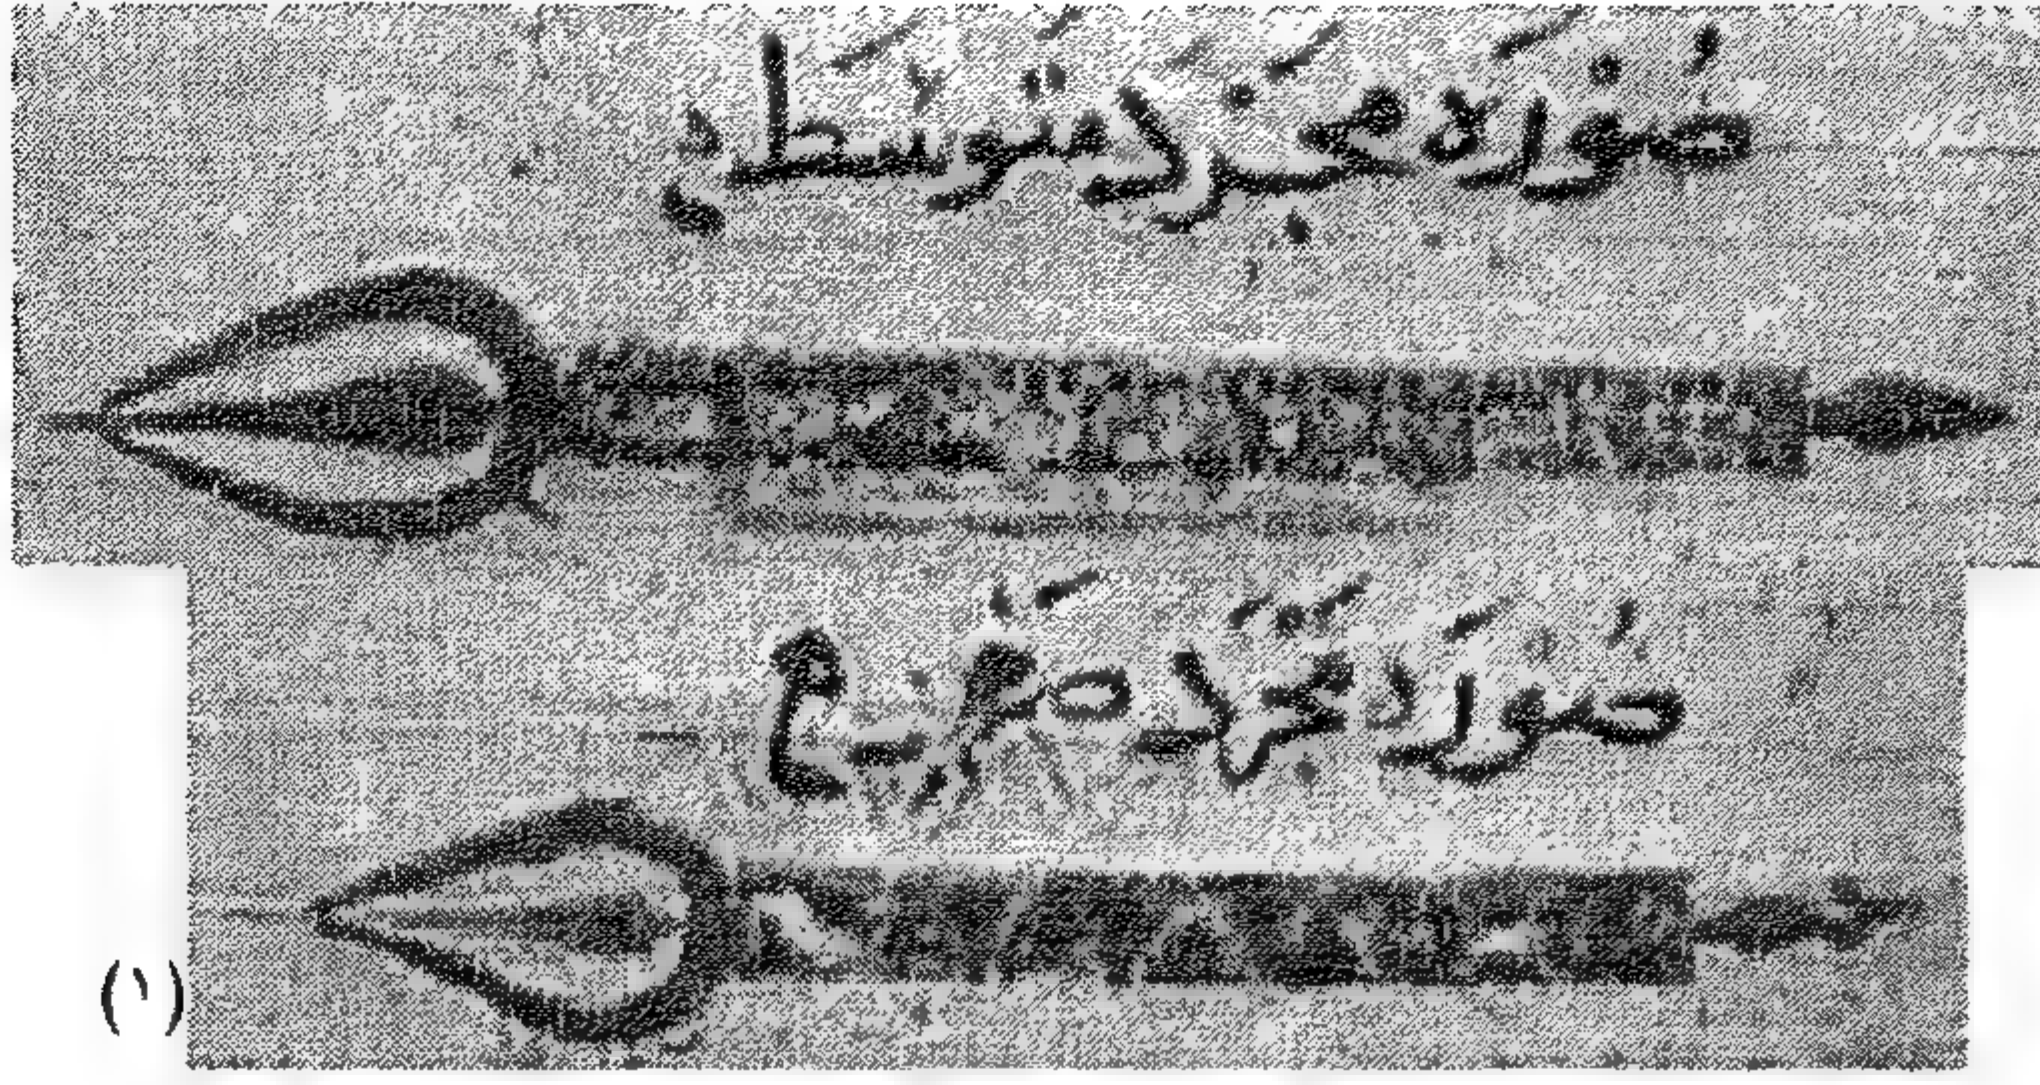 صورة مجرد متوسط
صورة مجرد صغير
(١)